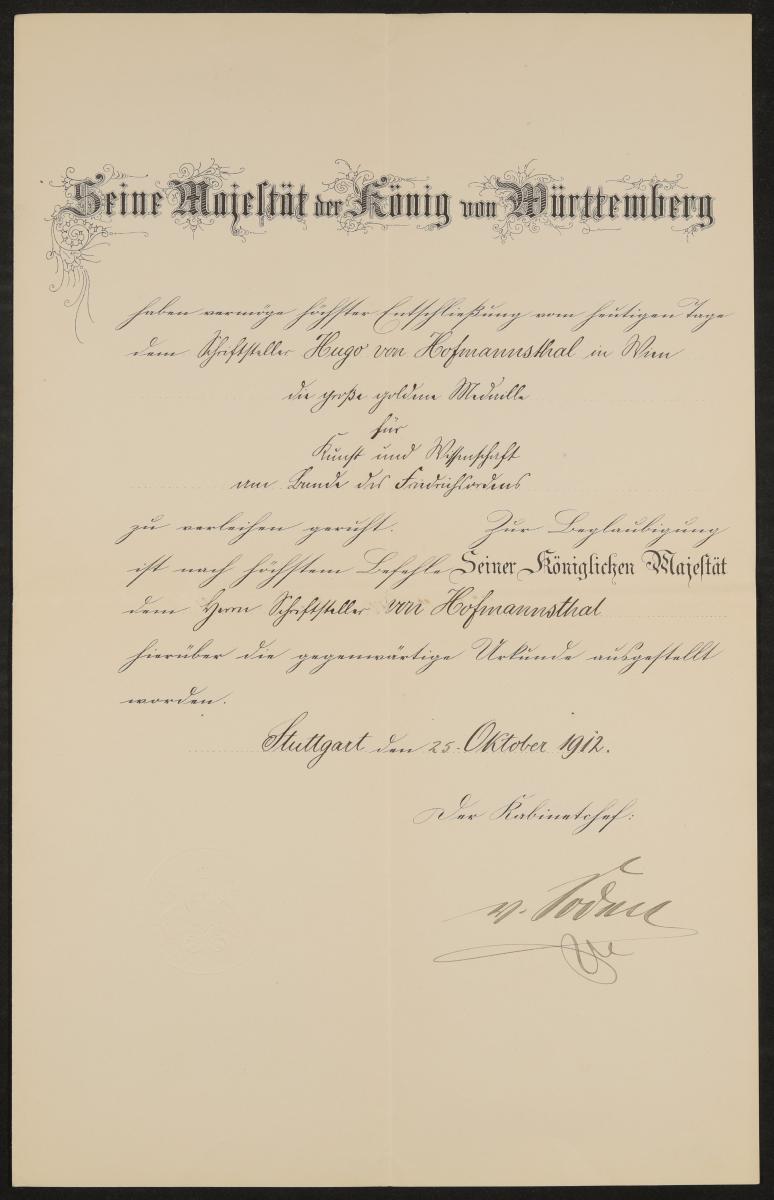 Seine Majestät der König von Württemberg
haben vermöge höchster Entschließung vom heutigen Tage
dem Schriftsteller Hugo von Hofmannsthal in Wien
die große goldene Medaille
für
Kunst und Wissenschaft
am Bande des Friedrichsordens
zu verleihen geruht. Zur Beglaubigung
ist nach höchstem Befehle Seiner Königlichen Majestät
dem Herrn Schriftsteller von Hofmannsthal
hierüber die gegenwärtige Urkunde ausgestellt
worden.
Stuttgart den 25. Oktober 1912.
Der Kabinetchef:
v. Soden